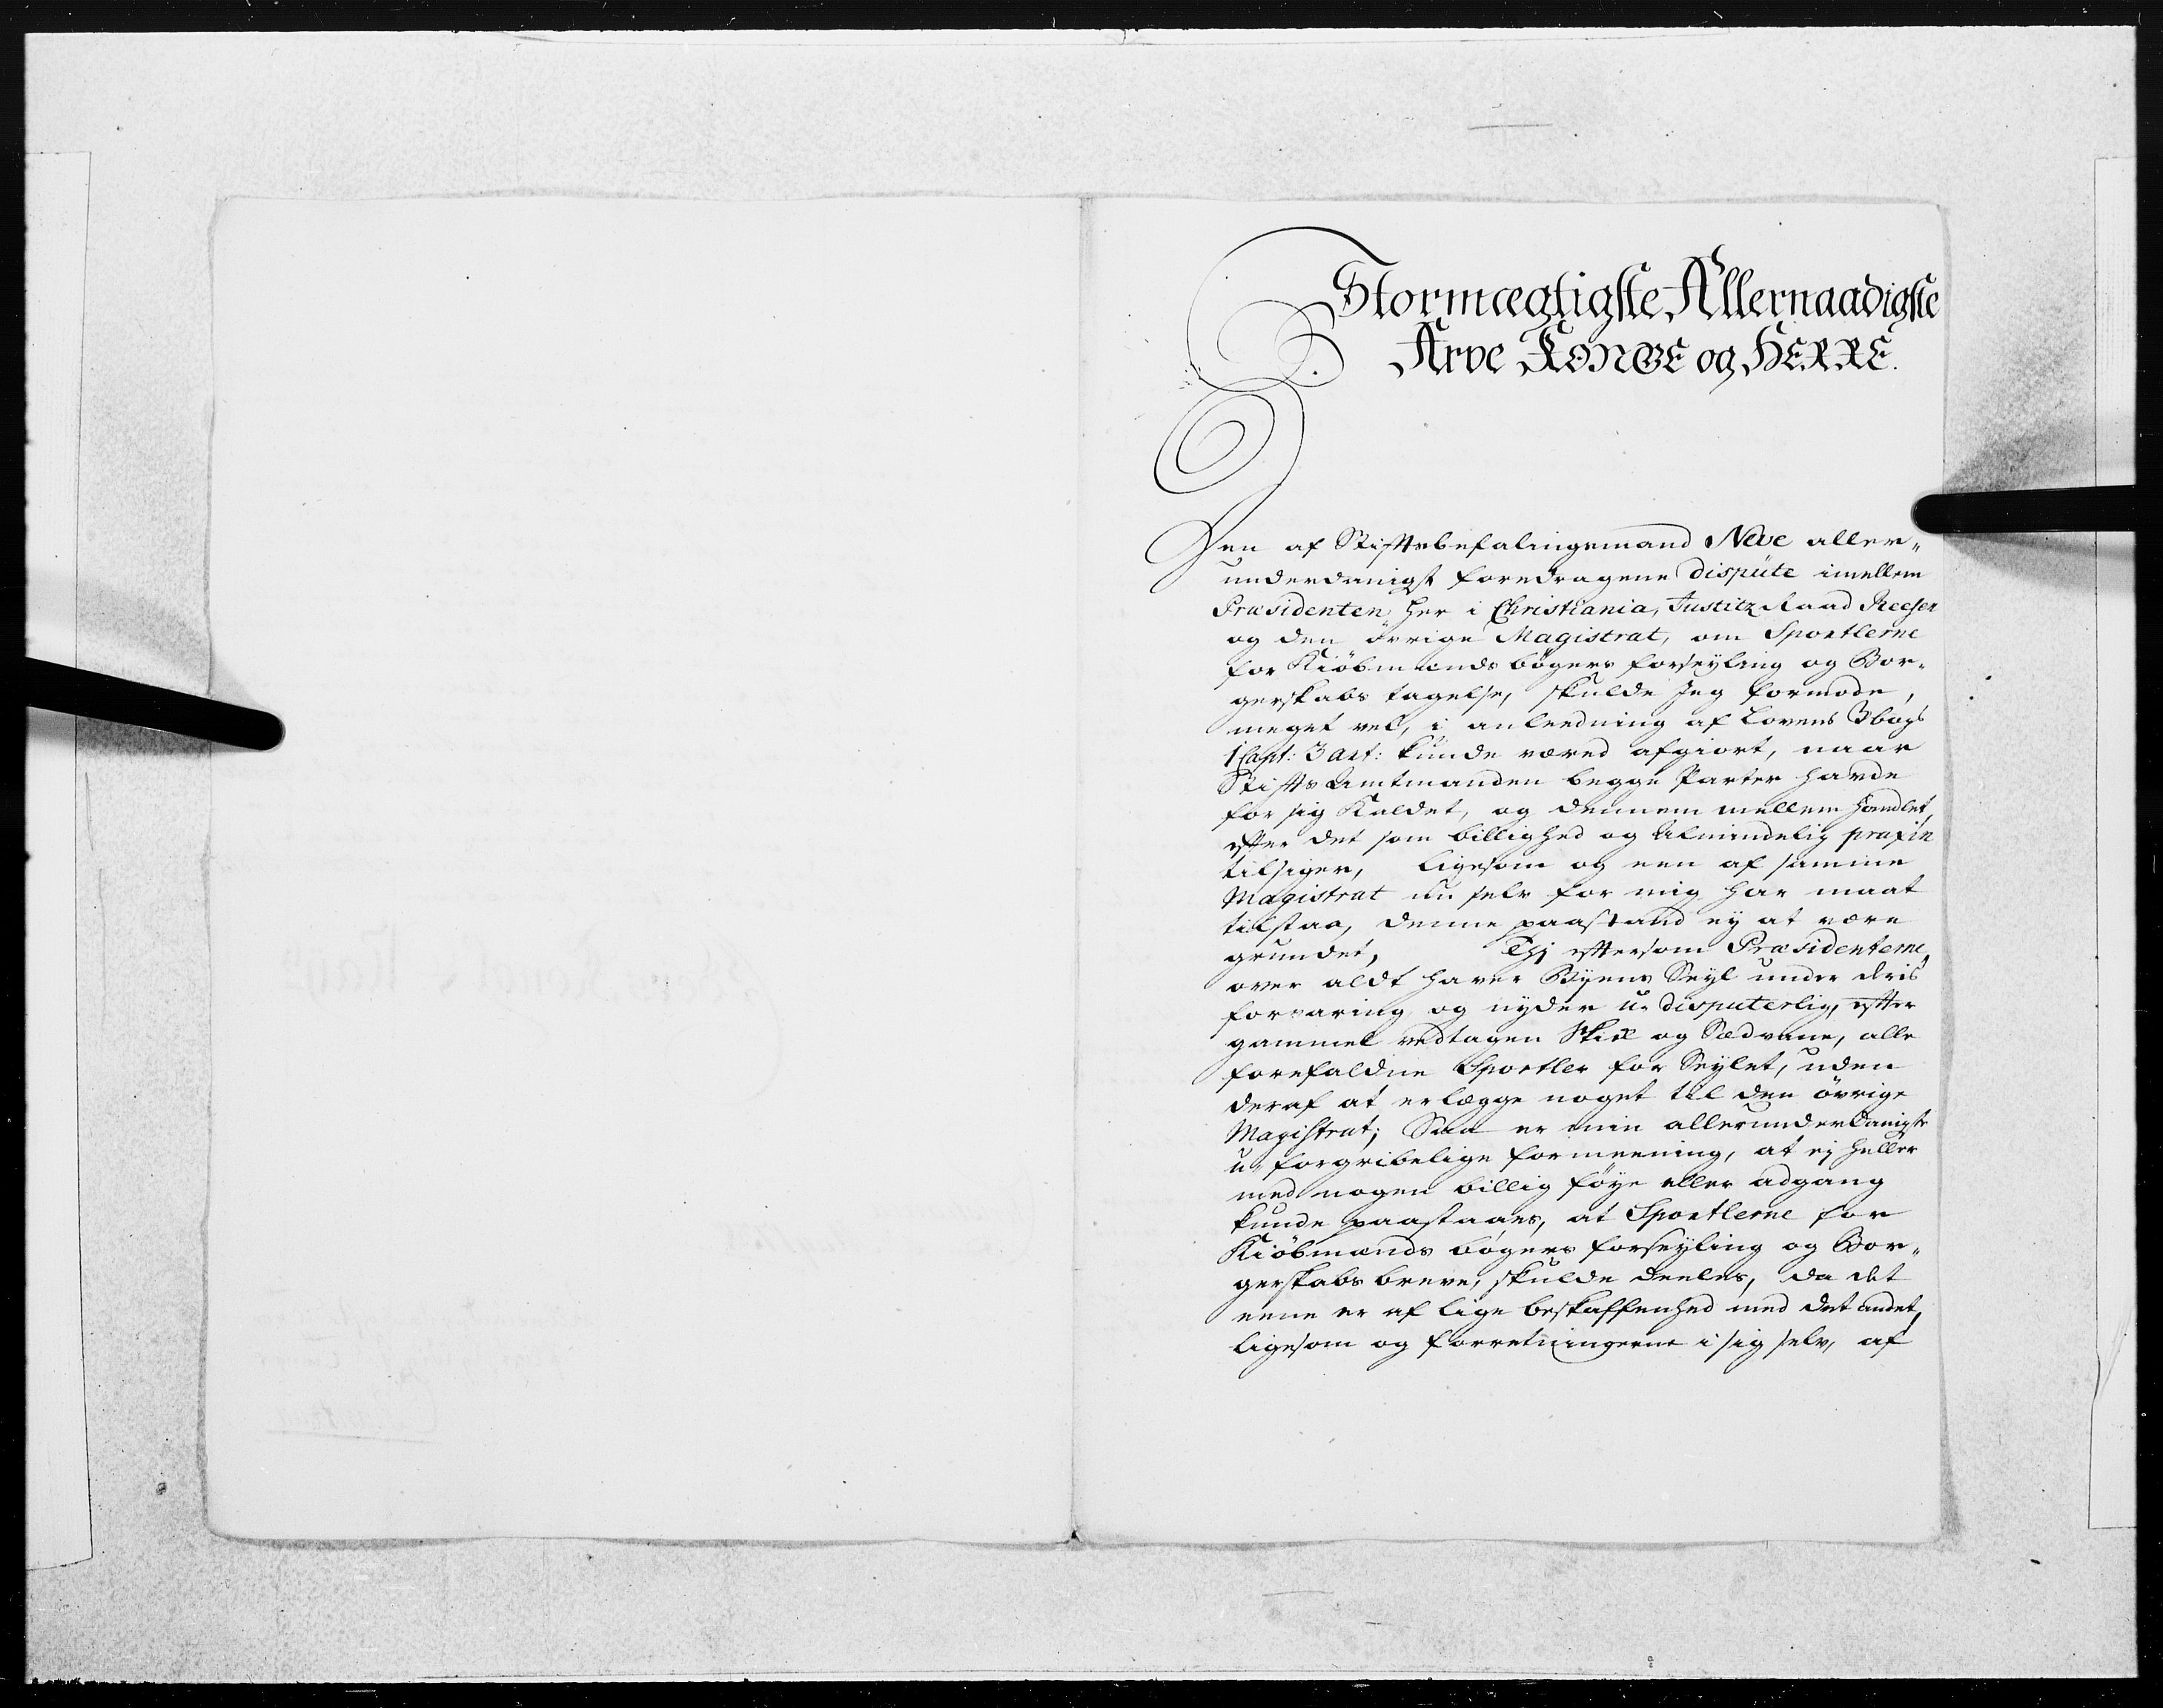 Stormægtigste Allernaadigste
Arve KONGE og HERRE.
Den af Stiftsbefalingsmand Neve aller„
underdanigst foredragene dispúte imellem
Præsidenten her i Christiania, Justitz Raad Reeser
og den övrige Magistrat, om Sportlerne
for Kiöbmands bögers forseyling og Bor„
gerskabs tagelse, skulde jeg formode,
meget vel, i anleedning af Lovens 3 bogs
1 Capt: 3 art: kunde været afgiort, naar
Stifts Amtmanden begge Parter havde
for sig Kaldet, og dennem mellem handlet,
efter det som billighed og Almindelig praxin
tilsiger, ligesom og een af samme
Magistrat nu selv for mig har maat
tilstaa, denne paastand ey at være
grundet, Thj eftersom Præsidenterne
over aldt haver Byens Seyl under deris
forvaring og nyder u„ disputerlig, efter
gammel vedtagen Skik og Sædvane, alle
forefaldne Sportler for Seylet, uden
deraf at erlægge noget til den övrige
Magistrat; Saa er min allerunderdanigste
u„ forgribelige formeening, at ej heller
med nogen billig föye eller adgang
kunde paastaaes, at Sportlerne for
Kiöbmands bögers forseyling og Bor„
gerskabs breve, skulde deeles, da det
eene er af lige beskaffenhed med det andet,
ligesom og forretningerne i sig selv, af